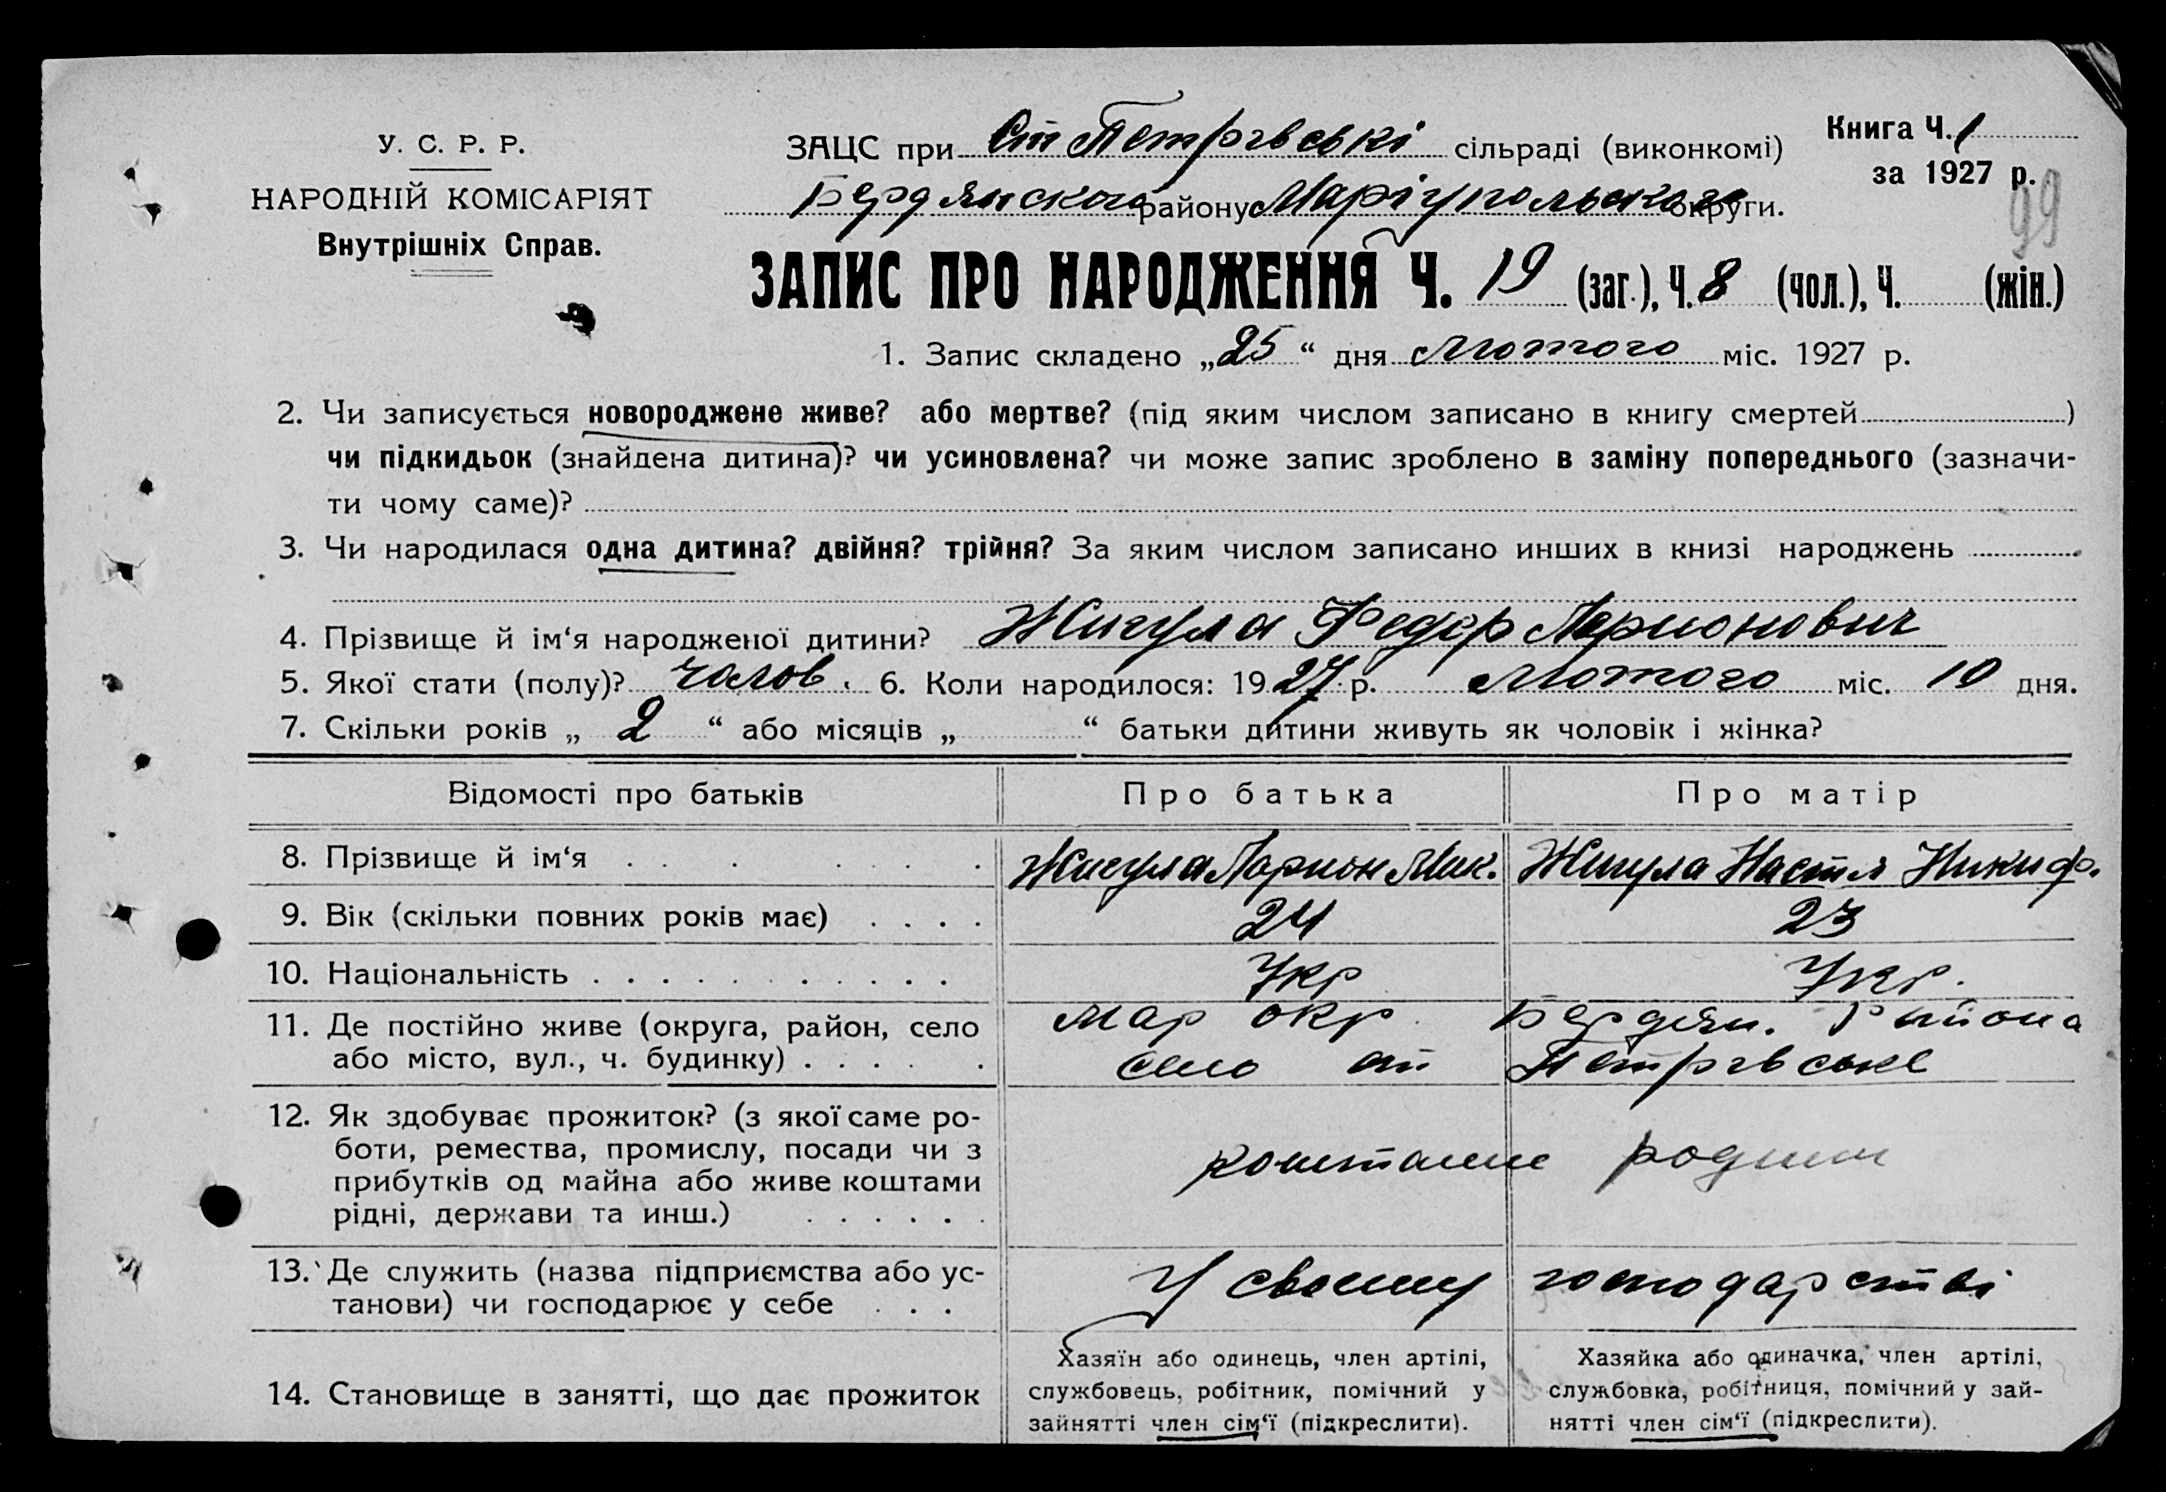 У. С. Р. Р.
НАРОДНІЙ КОМІСАРІЯТ
Внутрішніх Справ.
ЗАЦС при Ст Петрівські сільраді (виконкомі)
Бердянского району Маріупольского округи.
Книга Ч. 1
за 1927 р.
99
ЗАПИС ПРО НАРОДЖЕННЯ Ч. 19 (заг.), Ч. 8 (чол.), Ч. (жін.)
1. Запис складено „25“ дня Лютого міс. 1927 р.
2. Чи записується новороджене живе? або мертве? (під яким числом записано в книгу смертей )
чи підкидьок (знайдена дитина)? чи усиновлена? чи може запис зроблено в заміну попереднього (зазначи-
ти чому саме)?
3. Чи народилася одна дитина? двійня? трійня? За яким числом записано инших в книзі народжень
4. Прізвище й ім‘я народженої дитини? Жигула Федор Ларионович
5. Якої стати (полу)? чолов. 6. Коли народилося: 1927 р. Лютого міс. 10 дня.
7. Скільки років „ 2 “ або місяців „ “ батьки дитини живуть як чоловік і жінка?
Відомості про батьків Про батька Про матір
8. Прізвище й ім‘я . . . . . . . Жигула Ларион Мик. Жигула Настя Никиф.
9. Вік (скільки повних років має) . . . . 24 23
10. Національність . . . . . . . . . . Укр Укр.
11. Де постійно живе (округа, район, село Мар окр. Бердян. Района
або місто, вул., ч. будинку) . . . . . село ст Петрівське
12. Як здобуває прожиток? (з якої саме ро-
боти, ремества, промислу, посади чи з
прибутків од майна або живе коштами
рідні, держави та инш.) . . . . . .
коштами родини
13. Де служить (назва підприємства або ус-
танови) чи господарює у себе . . .
У своему господарстві
14. Становище в занятті, що дає прожиток
Хазяїн або одинець, член артілі,
службовець, робітник, помічний у
зайнятті член сім‘ї (підкреслити).
Хазяйка або одиначка, член артілі,
службовка, робітниця, помічний у зай-
нятті член сім‘ї (підкреслити).